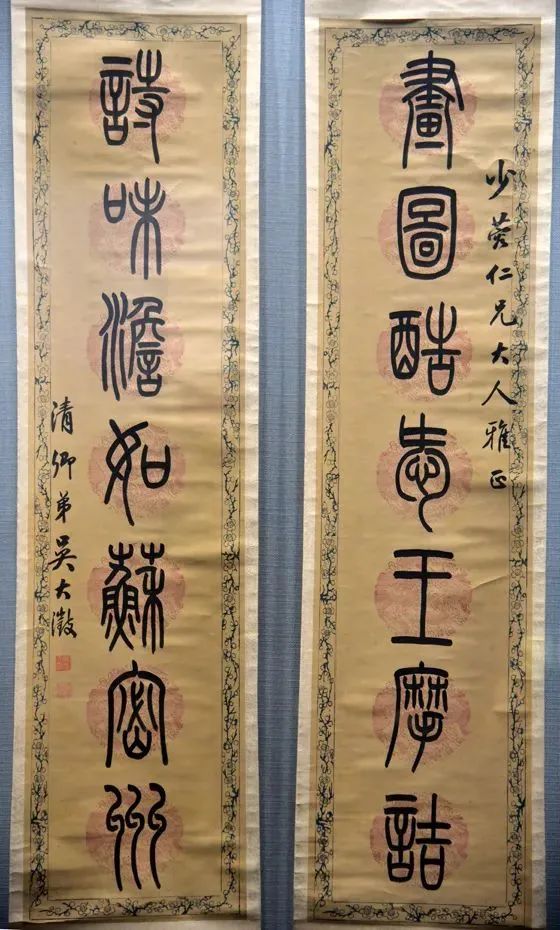 畫圖酷愛王摩詰
少葊仁兄大人雅正
詩味澹如蘇密州
清卿弟吳大澂